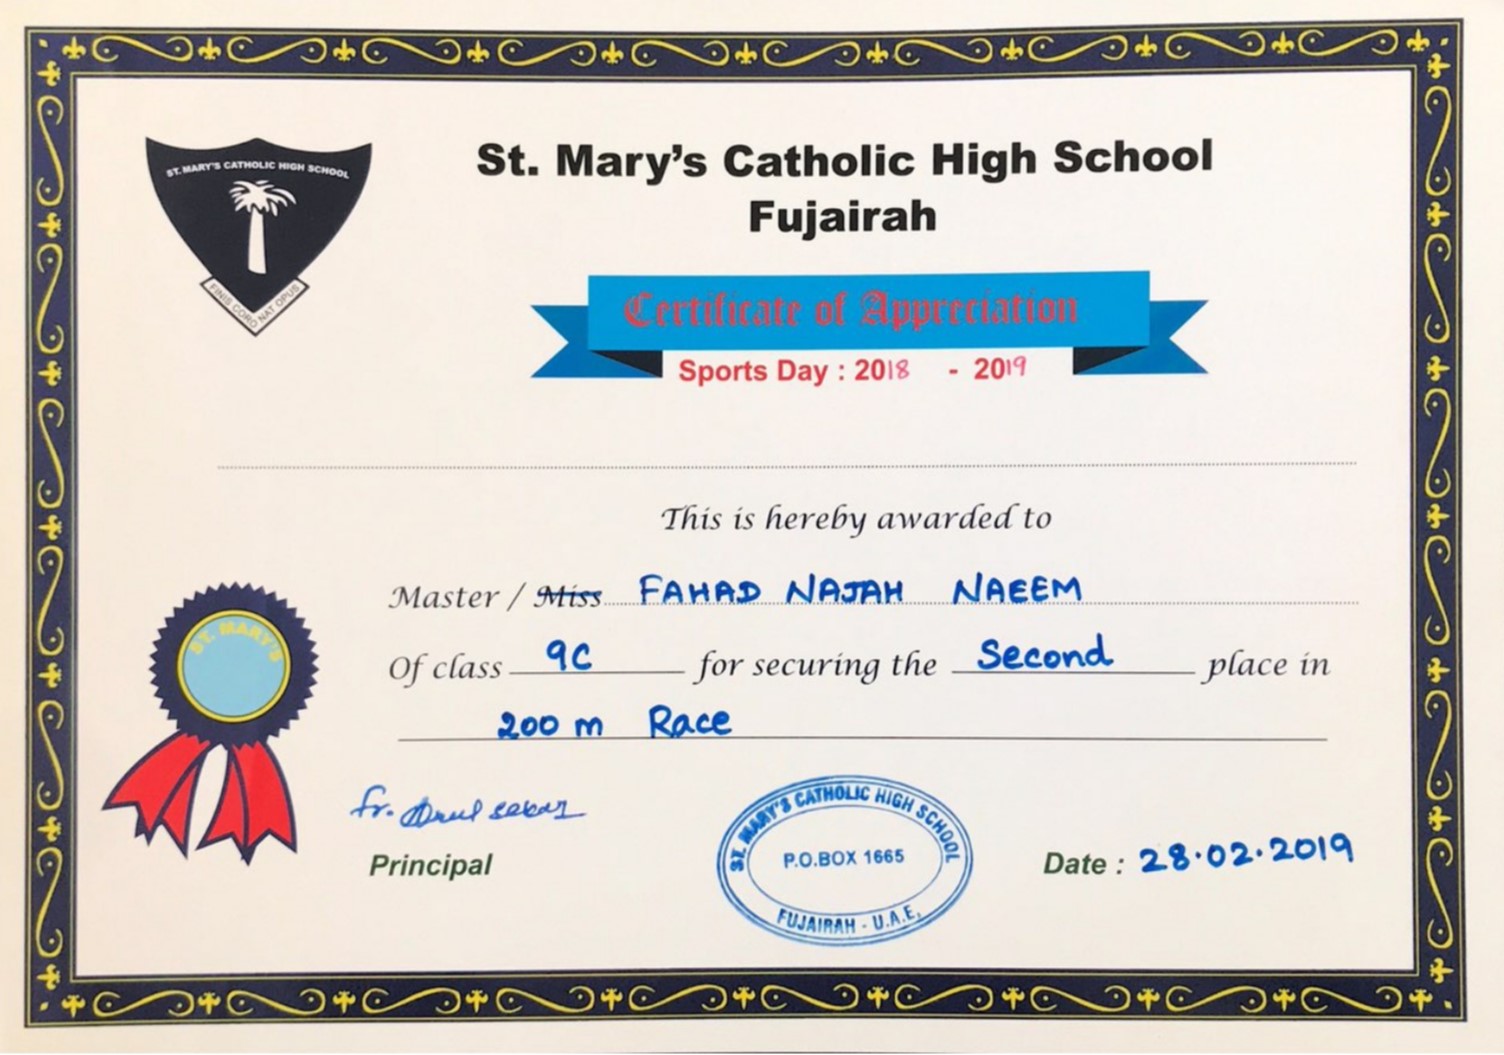 ST. MARY'S CATHOLIC HIGH SCHOOL
FINIS CORO NAT OPUS
St. Mary's Catholic High School
Fujairah
Certificate of Appreciation
Sports Day : 2018 - 2019
This is hereby awarded to
Master / Miss FAHAD NAJAH NAEEM
Of class 9C for securing the Second place in
200 m Race
ST. MARY'S
Fr. Arul sekar
Principal
ST. MARY'S CATHOLIC HIGH SCHOOL
P.O.BOX 1665
FUJAIRAH - U.A.E.
Date : 28.02.2019